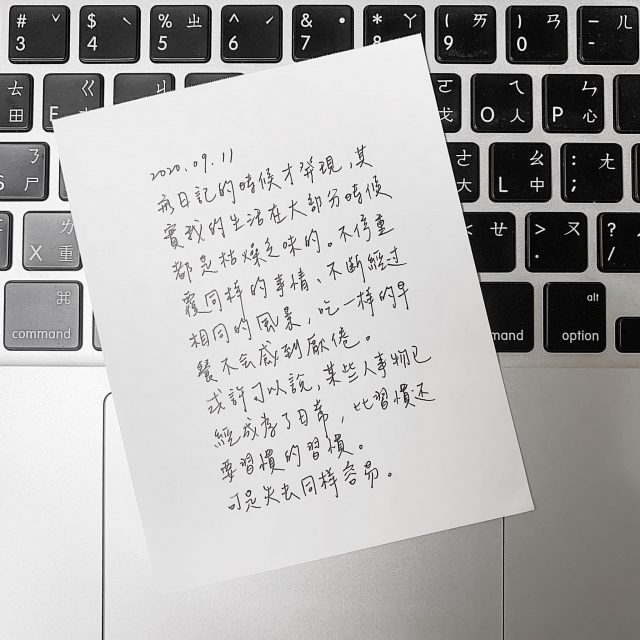 # ˇ
3
$ ˋ
4
% ㄓ
5
^ ˊ
6
& ˙
7
* ㄚ
8
( ㄞ
9
) ㄢ
0
— ㄦ
-
ㄊ
田
E ㄍ
ㄐ
ㄛ
O 人
ㄣ
P 心
ㄋ
S 尸
L ㄠ
中
: ㄤ
;
ㄌ
X 重
< ㄝ
> ㄡ
.
? ㄥ
/
⌘
command
command
alt
option
2020.09.11
寫日記的時候才發現,其
實我的生活在大部分時候
都是枯燥乏味的。不停重
覆同樣的事情、不斷經過
相同的風景,吃一樣的早
餐不会感到厭倦。
或許可以說,某些人事物已
經成為了日常,比習慣还
要習慣的習慣。
可是失去同样容易。